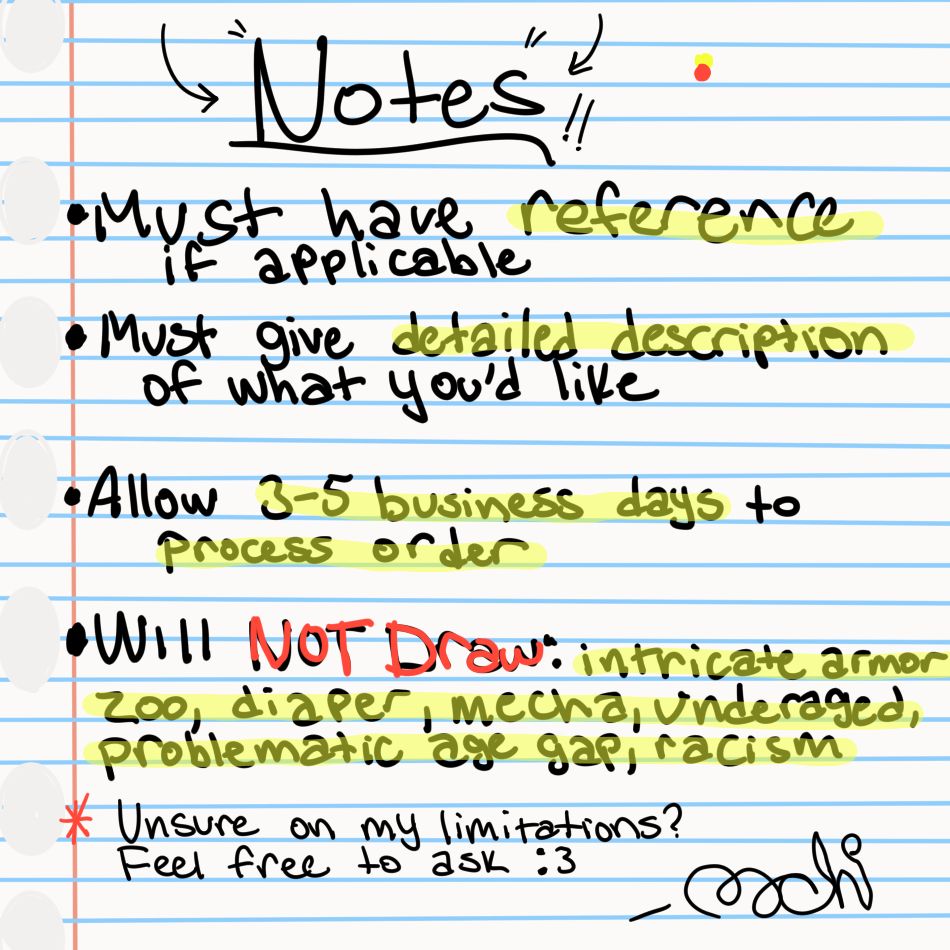 "Notes"!!
•Must have reference
if applicable
•Must give detailed description
of what you'd like
•Allow 3-5 business days to
process order
•Will NOT Draw: intricate armor
zoo, diaper, mecha, underaged,
problematic age gap, racism
* Unsure on my limitations?
Feel free to ask :3